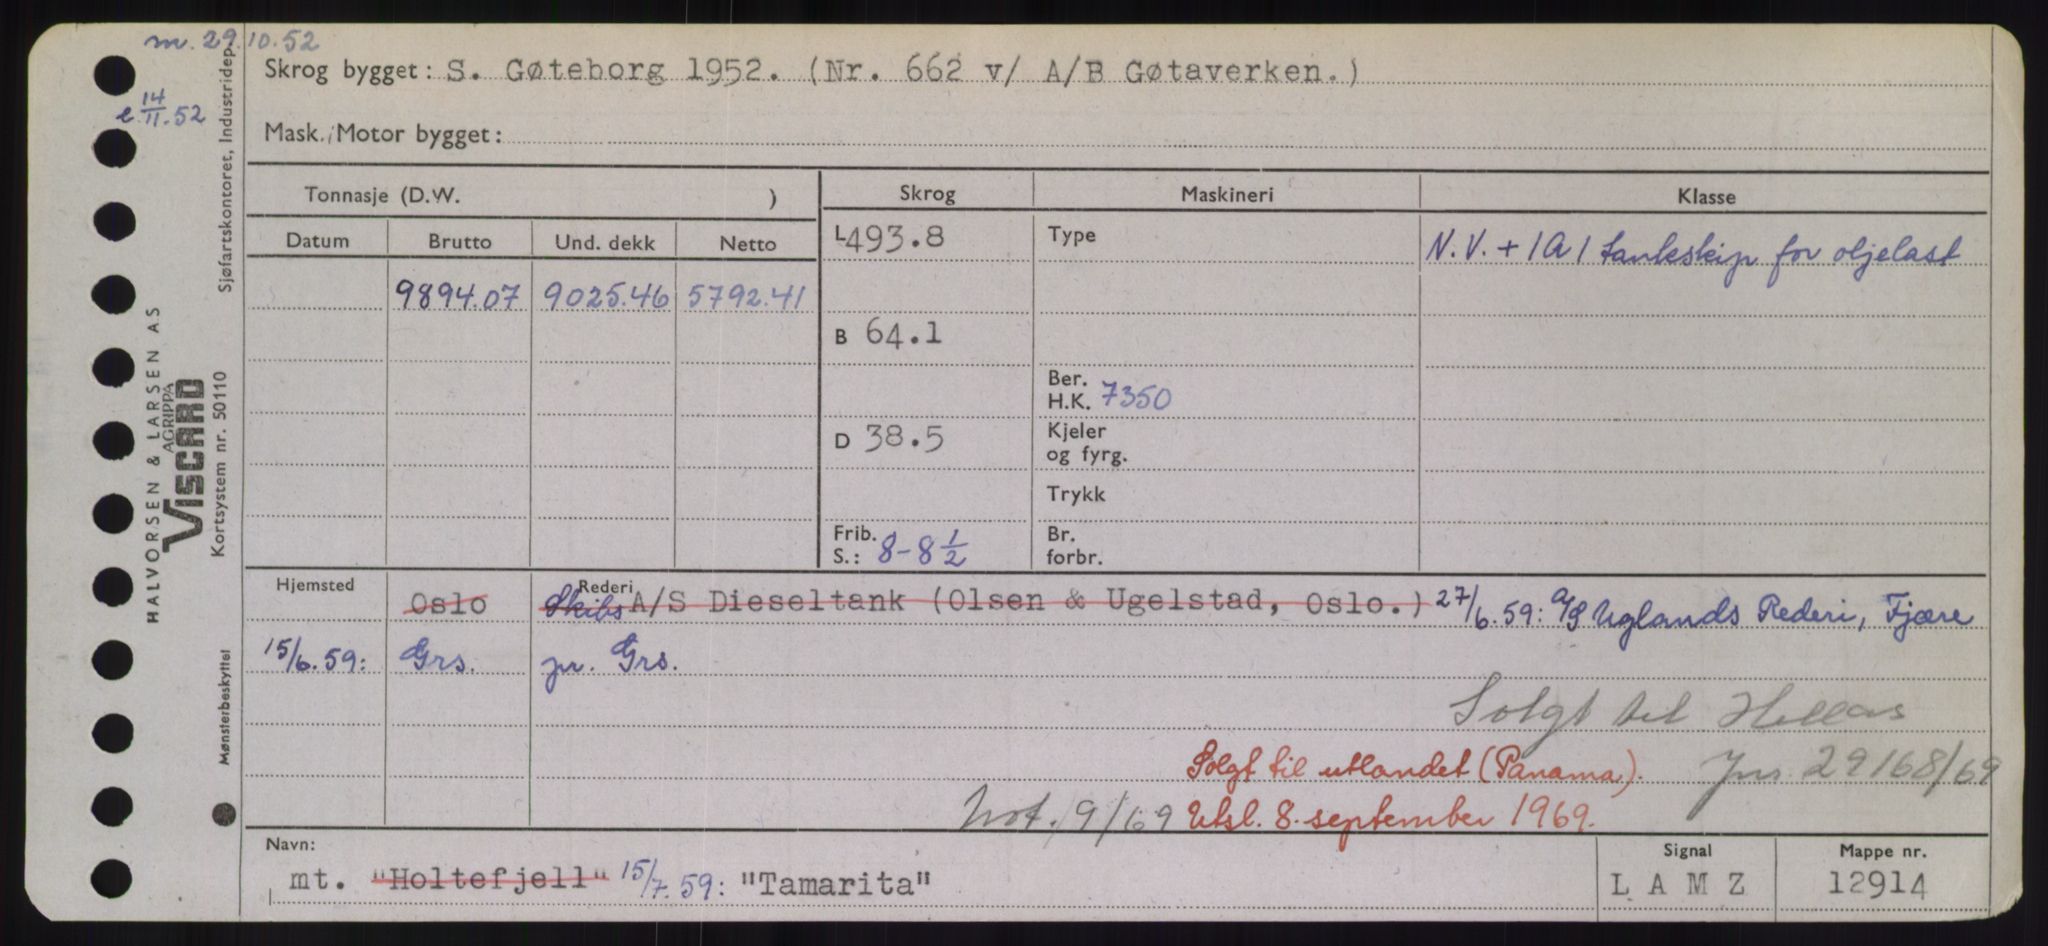 m. 29.10.52
e 14/11.52
Skrog bygget: S. Gøteborg 1952. (Nr. 662 v/ A/B Gøtaverken.)
Mask./Motor bygget:
Tonnasje (D.W. )
Skrog
Maskineri
Klasse
Datum
Brutto
Und. dekk
Netto
L 493.8
Type
N.V. + 1A1 tankskip for oljelast
9894.07 9025.46 5792.41
B 64.1
Ber. H.K. 7350
D 38.5
Kjeler og fyrg.
Trykk
Frib. S.: 8-8 1/2
Br. forbr.
Hjemsted
Oslo
Rederi
Skibs A/S Dieseltank (Olsen & Ugelstad, Oslo.) 27/6.59: A/S Uglands Rederi, Fjære
15/6.59: Grs. pr. Grs.
Solgt til Hellas
Solgt til utlandet (Panama). Jnr 29168/69
Not. 9/69 Utsl. 8. september 1969.
Navn:
mt. "Holtefjell" 15/7.59: "Tamarita"
Signal
L A M Z
Mappe nr.
12914
HALVORSEN & LARSEN AS
AGRIPPA
VISCARD
Kortsystem nr. 50110
Sjøfartskontoret, Industridep.
Mønsterbeskyttet